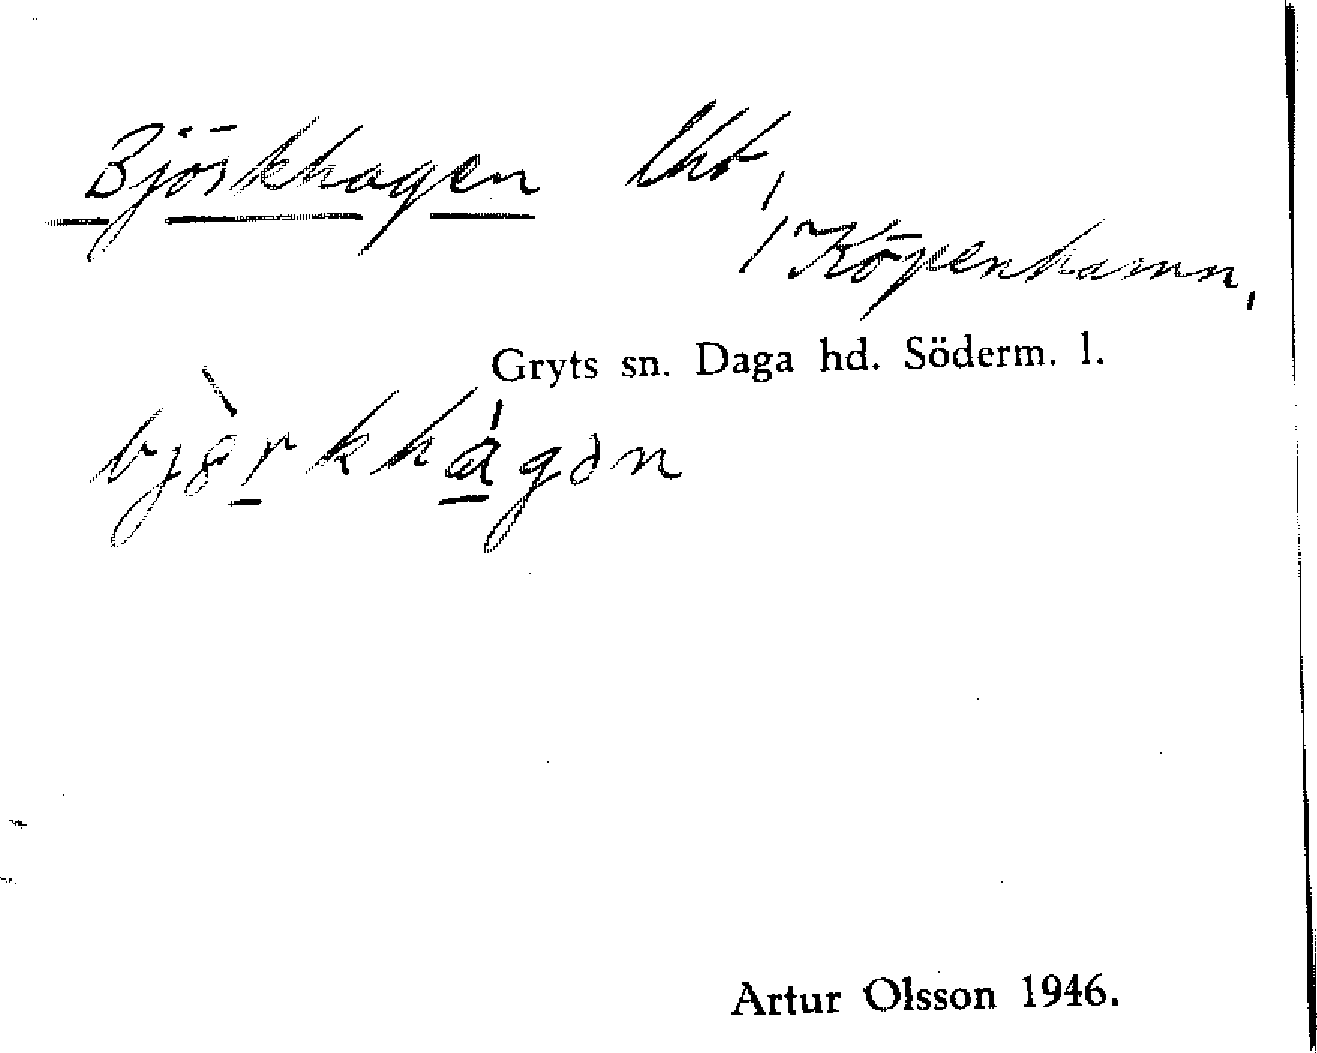 Björkhagen lht,
/Köpenhamn,
Gryts sn. Daga hd. Söderm. l.
bjòrkhágən
Artur Olsson 1946.